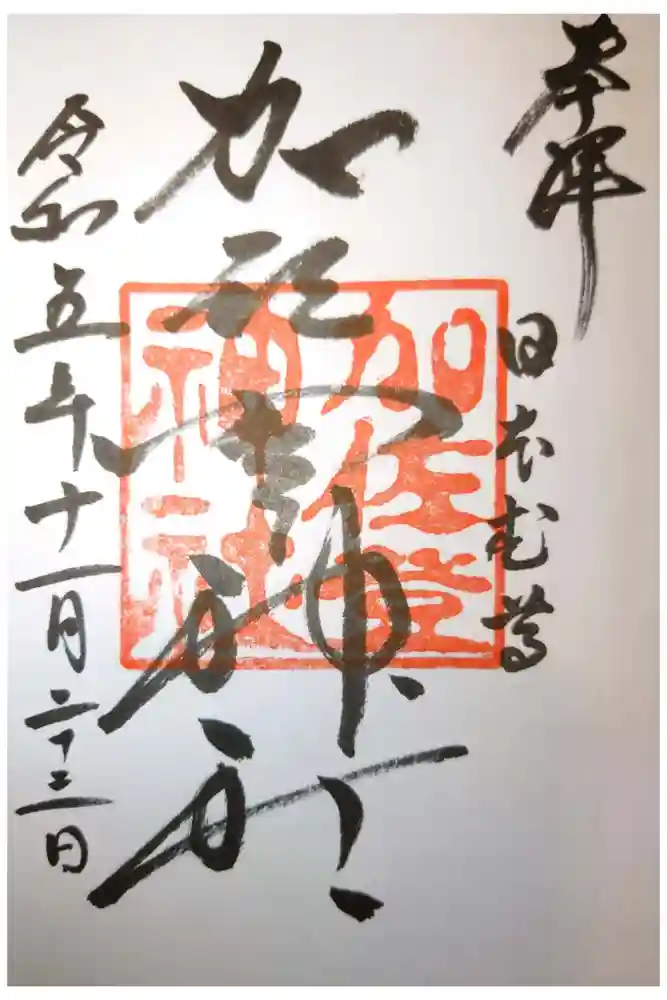 奉拝
日本武尊
加佐登神社
加佐登
神社
令和五年十一月二十三日